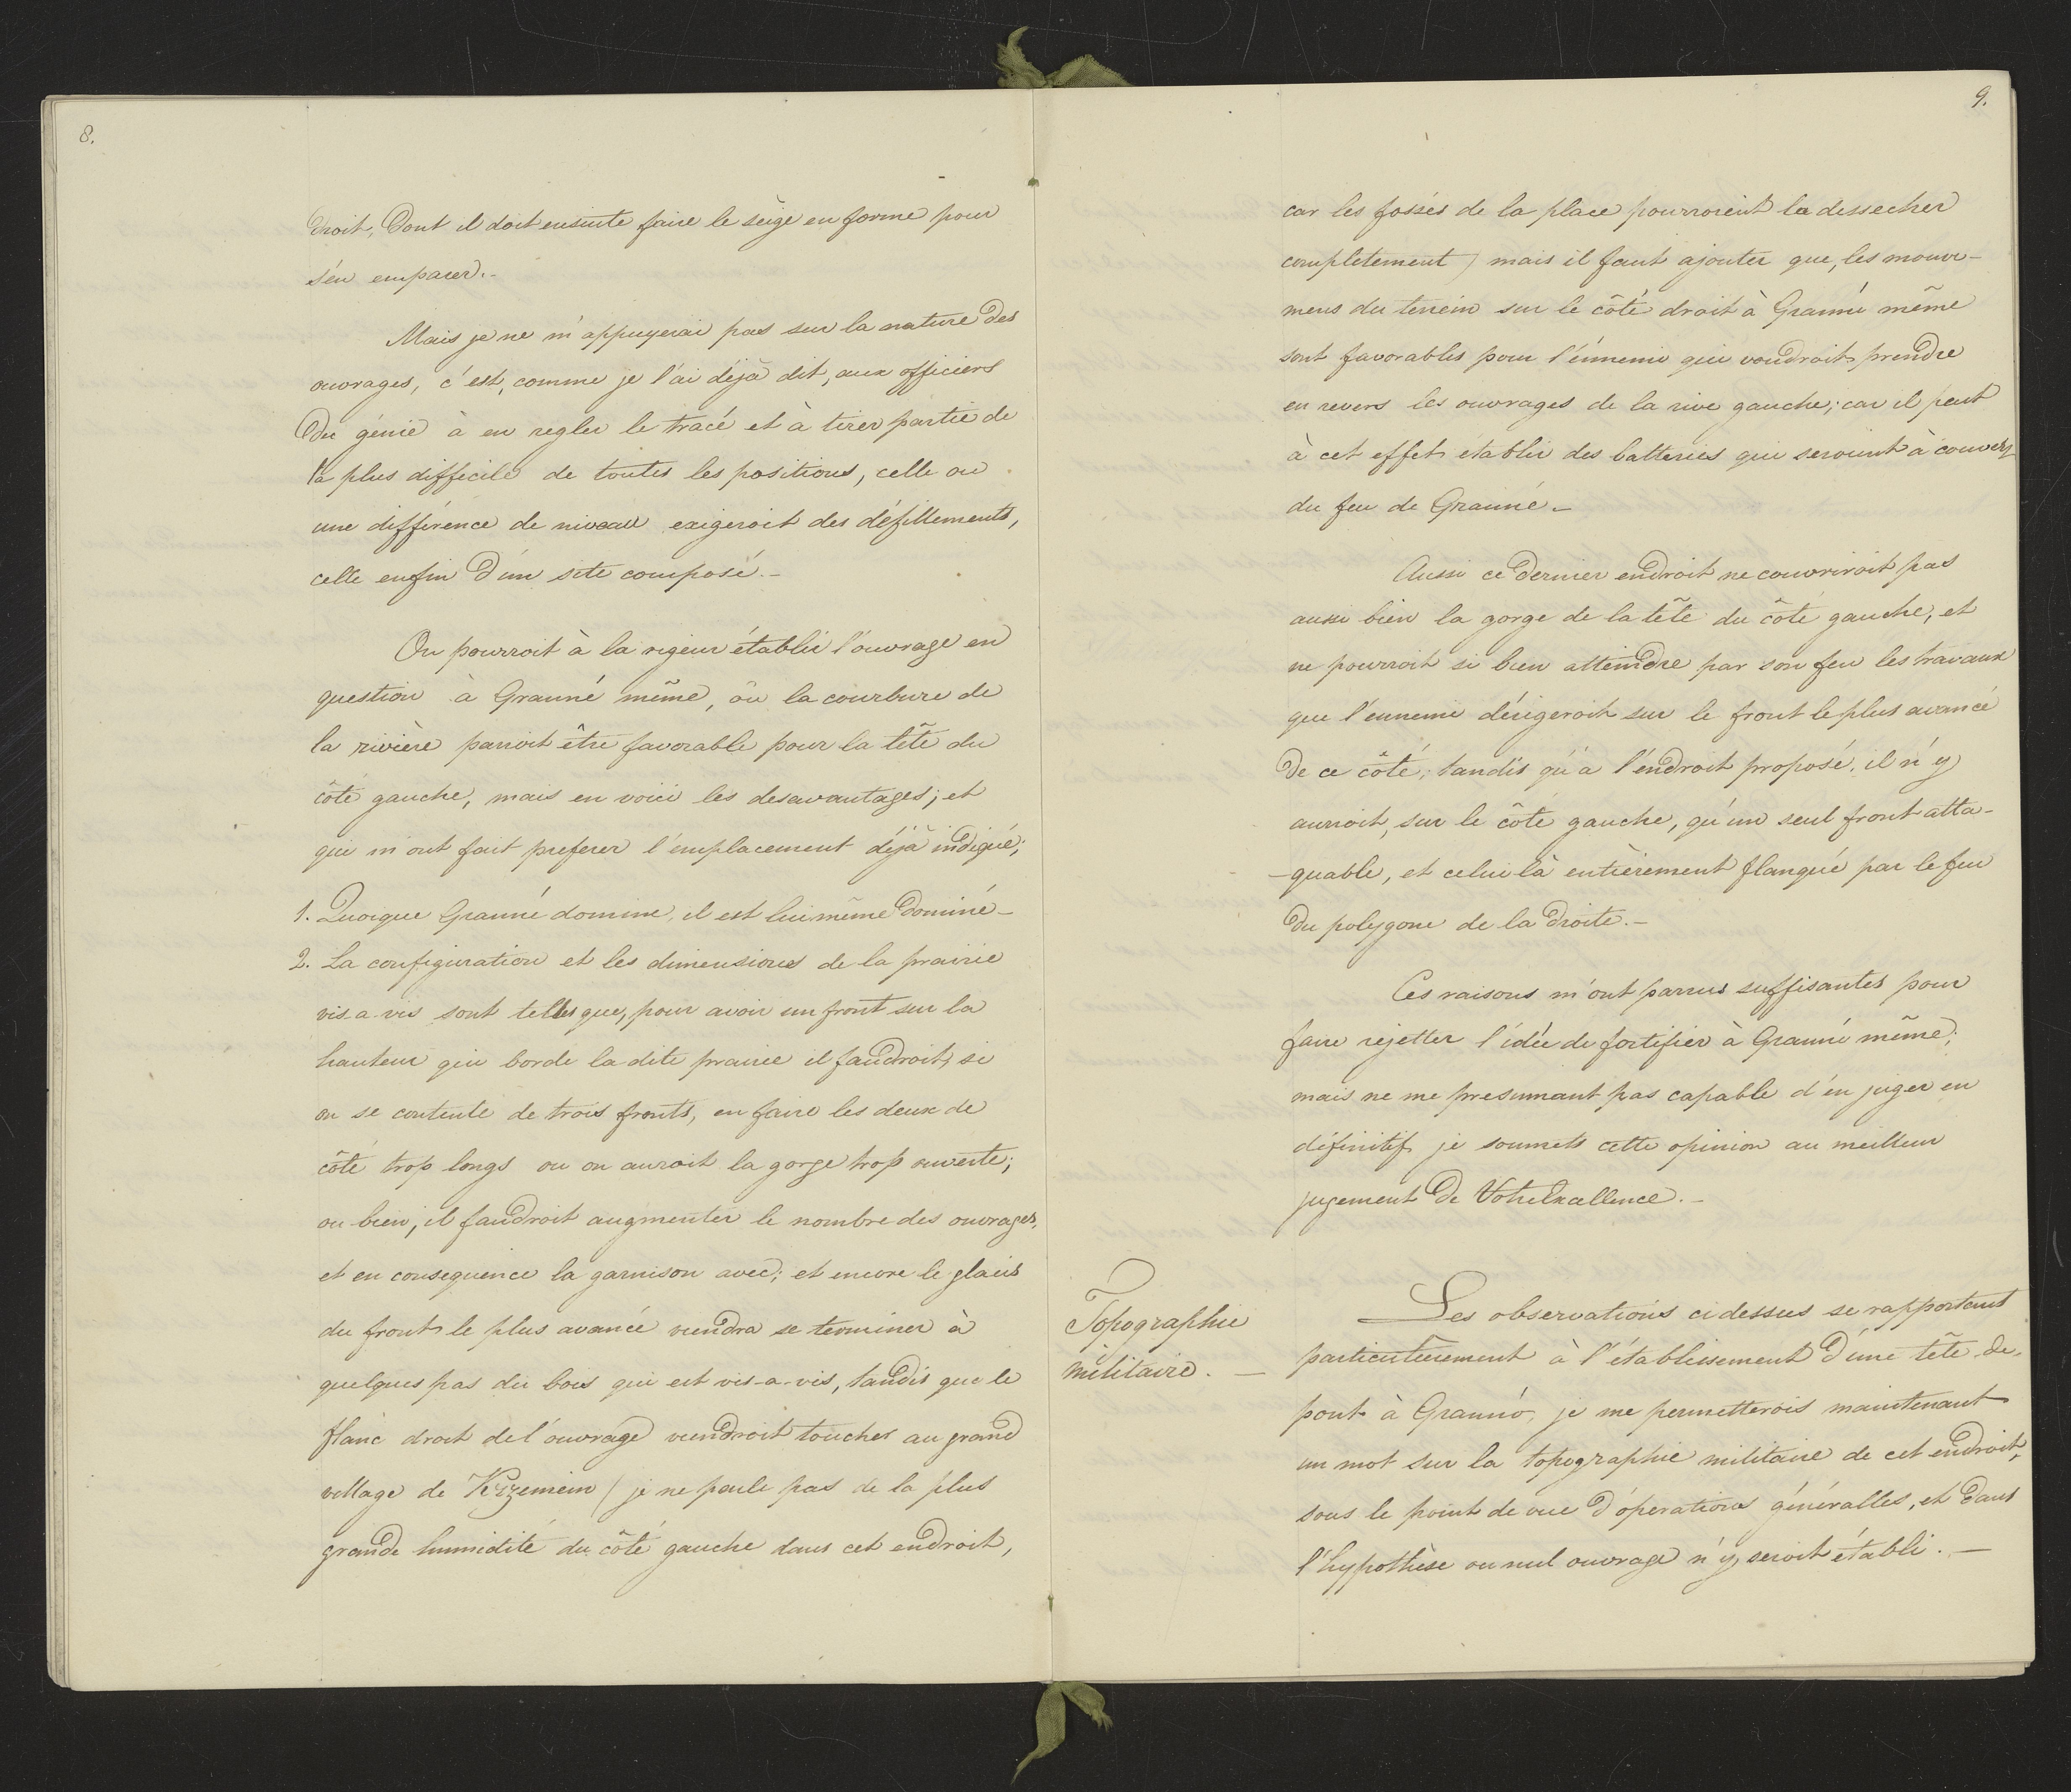 8.
droit, dont il doit ensuite faire le sèige en forme pour
s'en emparer.-
Mais je ne m'appuyerai pas sur la nature des
ouvrages, c'est, comme je l'ai déjà dit, aux officiers
du génie à en regler le tracé et à tirer partie de
la plus difficile de toutes les positions, celle ou
une différence de niveau exigeroit des défillements,
celle enfin d'un site composé.-
On pourroit à la rigeur établir l'ouvrage en
question à Granné même, où la courbure de
la rivière paroit être favorable pour la tête du
côté gauche, mais en voici les desavantages; et
qui m'ont fait preferer l'emplacement déjà indiqué;
1. Quoique Granné domine, il est lui même dominé-
2. La configuration et les dimensions de la prairie
vis-a-vis sont telles que, pour avoir un front sur la
hauteur qui borde la dite prairie il faudroit, si
on se contente de trois fronts, en faire les deux de
côté trop longs ou on auroit la gorge trop ouverte;
ou bien, il faudroit augmenter le nombre des ouvrages,
et en consequence la garnison avec; et encore le glacis
du front le plus avancé viendra se terminer à
quelques pas du bois qui est vis-a-vis, tandis que le
flanc droit de l'ouvrage viendroit toucher au grand
village de Krzemein (je ne parle pas de la plus
grande humidité du côté gauche dans cet endroit,
9.
car les fossés de la place pourroient la dessecher
completement) mais il faut ajouter que, les mouve-
mens du terrein sur le côté droit à Granné même
sont favorables pour l'énnemi qui voudroit prendre
en revers les ouvrages de la rive gauche; car il peut
à cet effet établir des batteries qui seroient à couvert
du feu de Granné.-
Aussi ce dernier endroit ne couvriroit pas
aussi bien la gorge de la tête du côté gauche, et
ne pourroit si bien atteindre par son feu les travaux
que l'ennemi dérigeroit sur le front le plus avancé
de ce côté; tandis qu'à l'endroit proposé, il n'y
auroit, sur le côté gauche, qu'un seul front atta-
-quable, et celui là entièrement flanqué par le feu
du polygone de la droite.-
Ces raisons m'ont parues suffisantes pour
faire rejetter l'idée de fortifier à Granné même;
mais ne me presumant pas capable d'en juger en
définitif je soumets cette opinion au meilleur
jugement de Votre Excellence.-
Topographie
militaire. -
Les observations ci dessus se rapportant
particulièrement à l'établissement d'une tête-de-
pont à Granno, je me permetterois maintenant
un mot sur la topographie militaire de cet endroit,
sous le point de vue d'operations généralles, et dans
l'hypothèse ou nul ouvrage n'y seroit établi.-